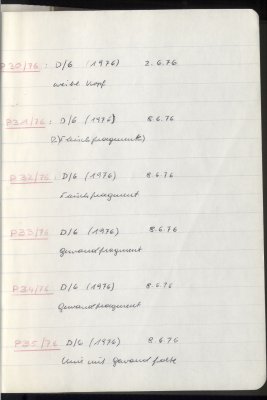 P30/76: D/6 (1976) 2.6.76
weibl Kopf
P31/76: D/6 (1976) 8.6.76
2) Fleischfragment
P32/76: D/6 (1976) 8.6.76
Fleischfragment
P33/76 D/6 (1976) 8.6.76
Gewandfragment
P34/76 D/6 (1976) 8.6.76
Gewandfragment
P35/76 D/6 (1976) 8.6.76
Knie mit Gewandfalte